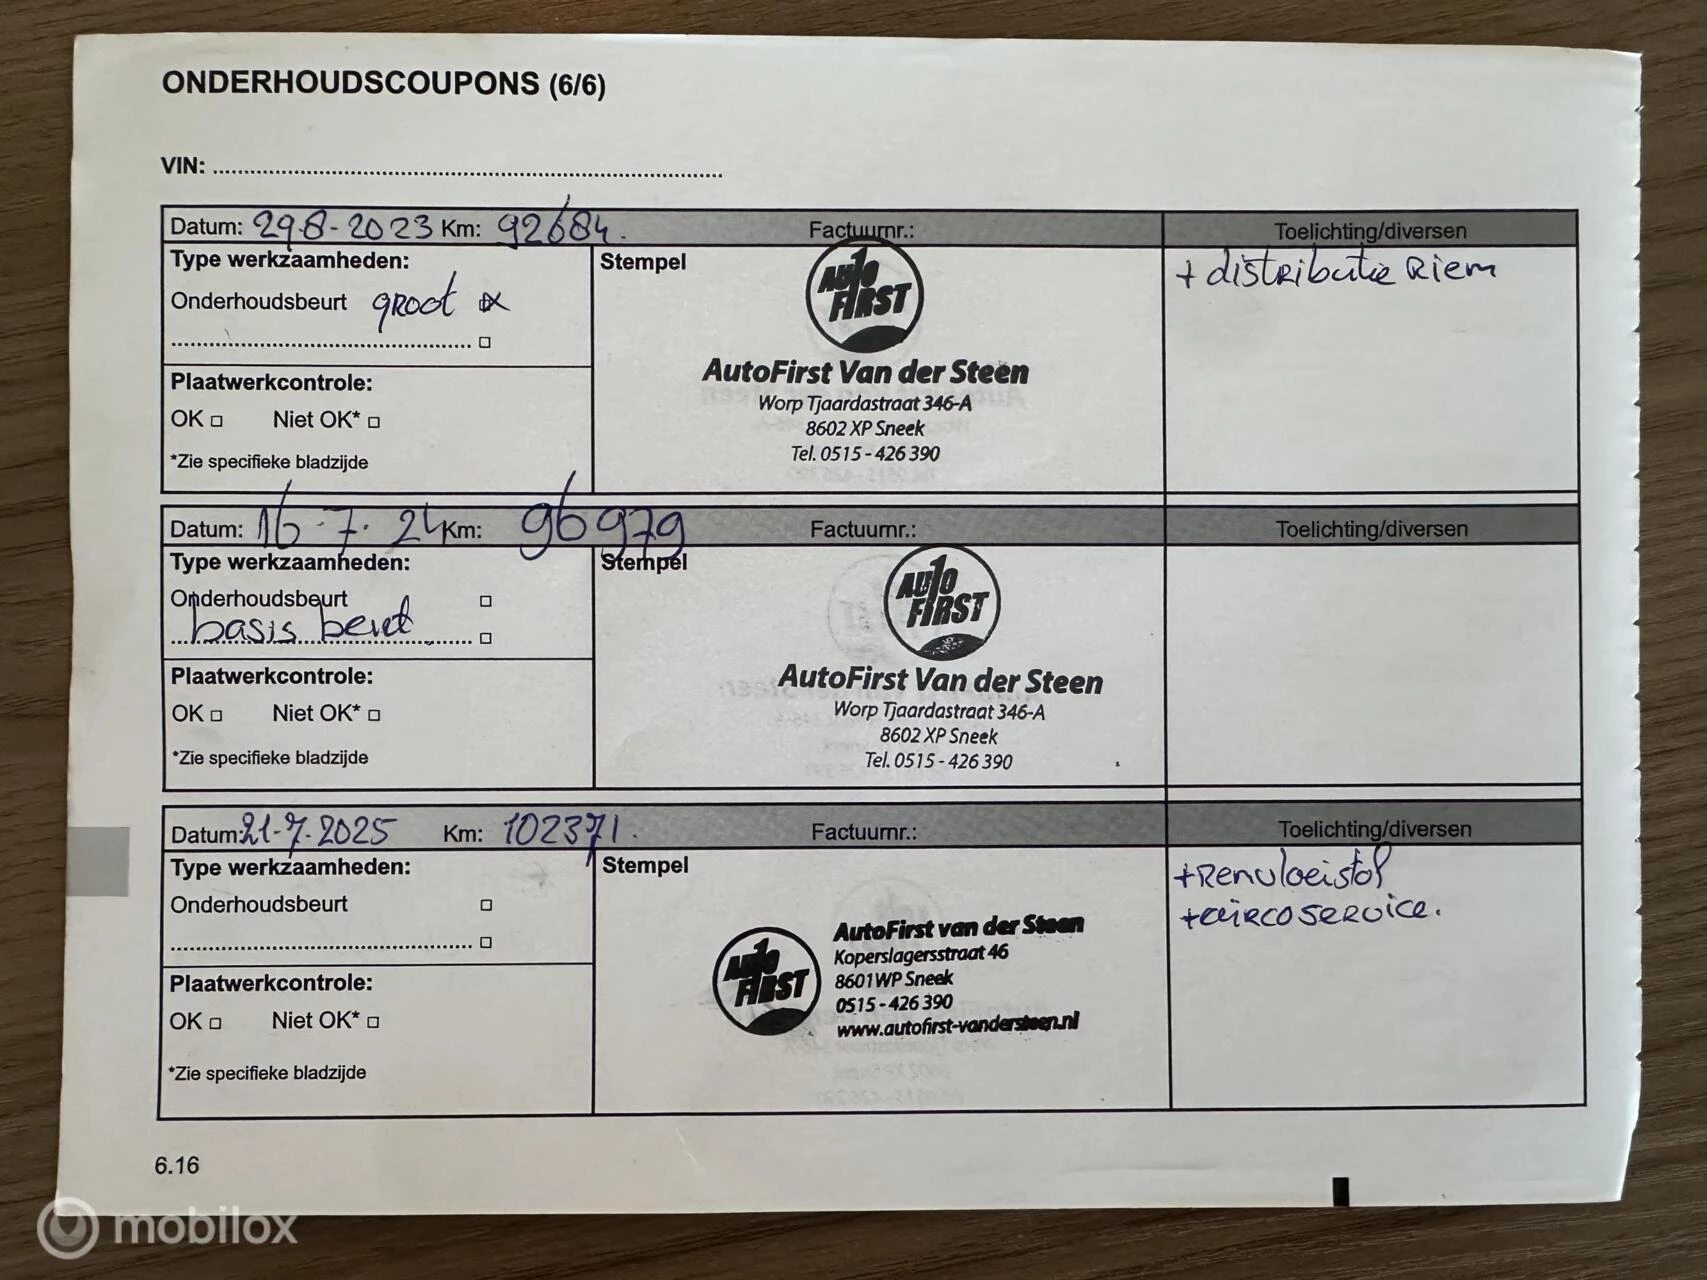 ONDERHOUDSCOUPONS (6/6)
VIN:
Datum: 29-8-2023 Km: 92684. Factuurnr.: Toelichting/diversen
Type werkzaamheden: Stempel
+ distributie Riem
Onderhoudsbeurt groot x
AUTO FIRST
Plaatwerkcontrole:
OK Niet OK*
*Zie specifieke bladzijde
AutoFirst Van der Steen
Worp Tjaardastraat 346-A
8602 XP Sneek
Tel. 0515 - 426 390
Datum: 16-7-24 Km: 96979 Factuurnr.: Toelichting/diversen
Type werkzaamheden: Stempel
Onderhoudsbeurt
basis beurt
AUTO FIRST
Plaatwerkcontrole:
OK Niet OK*
*Zie specifieke bladzijde
AutoFirst Van der Steen
Worp Tjaardastraat 346-A
8602 XP Sneek
Tel. 0515 - 426 390
Datum: 21-7-2025 Km: 102371. Factuurnr.: Toelichting/diversen
Type werkzaamheden: Stempel
+ Remvloeistof
+ aircoservice.
Onderhoudsbeurt
Plaatwerkcontrole:
OK Niet OK*
*Zie specifieke bladzijde
AUTO FIRST
AutoFirst van der Steen
Koperslagersstraat 46
8601WP Sneek
0515 - 426 390
www.autofirst-vandersteen.nl
6.16
mobilox